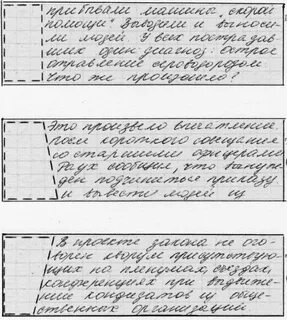 прибывали машины „скорой
помощи". Выводили и выноси-
ли людей. У всех пострадав-
ших один диагноз: острое
отравление сероводородом.
Что же произошло?
Это произвело впечатление.
После короткого совещания
со старшими офицерами
Раух сообщил, что вынуж-
ден подчиниться приказу
и вывести людей из
В проекте закона не ого-
ворен кворум присутствую-
щих на пленумах, съездах,
конференциях при выдвиже-
нии кандидатов из обще-
ственных организаций